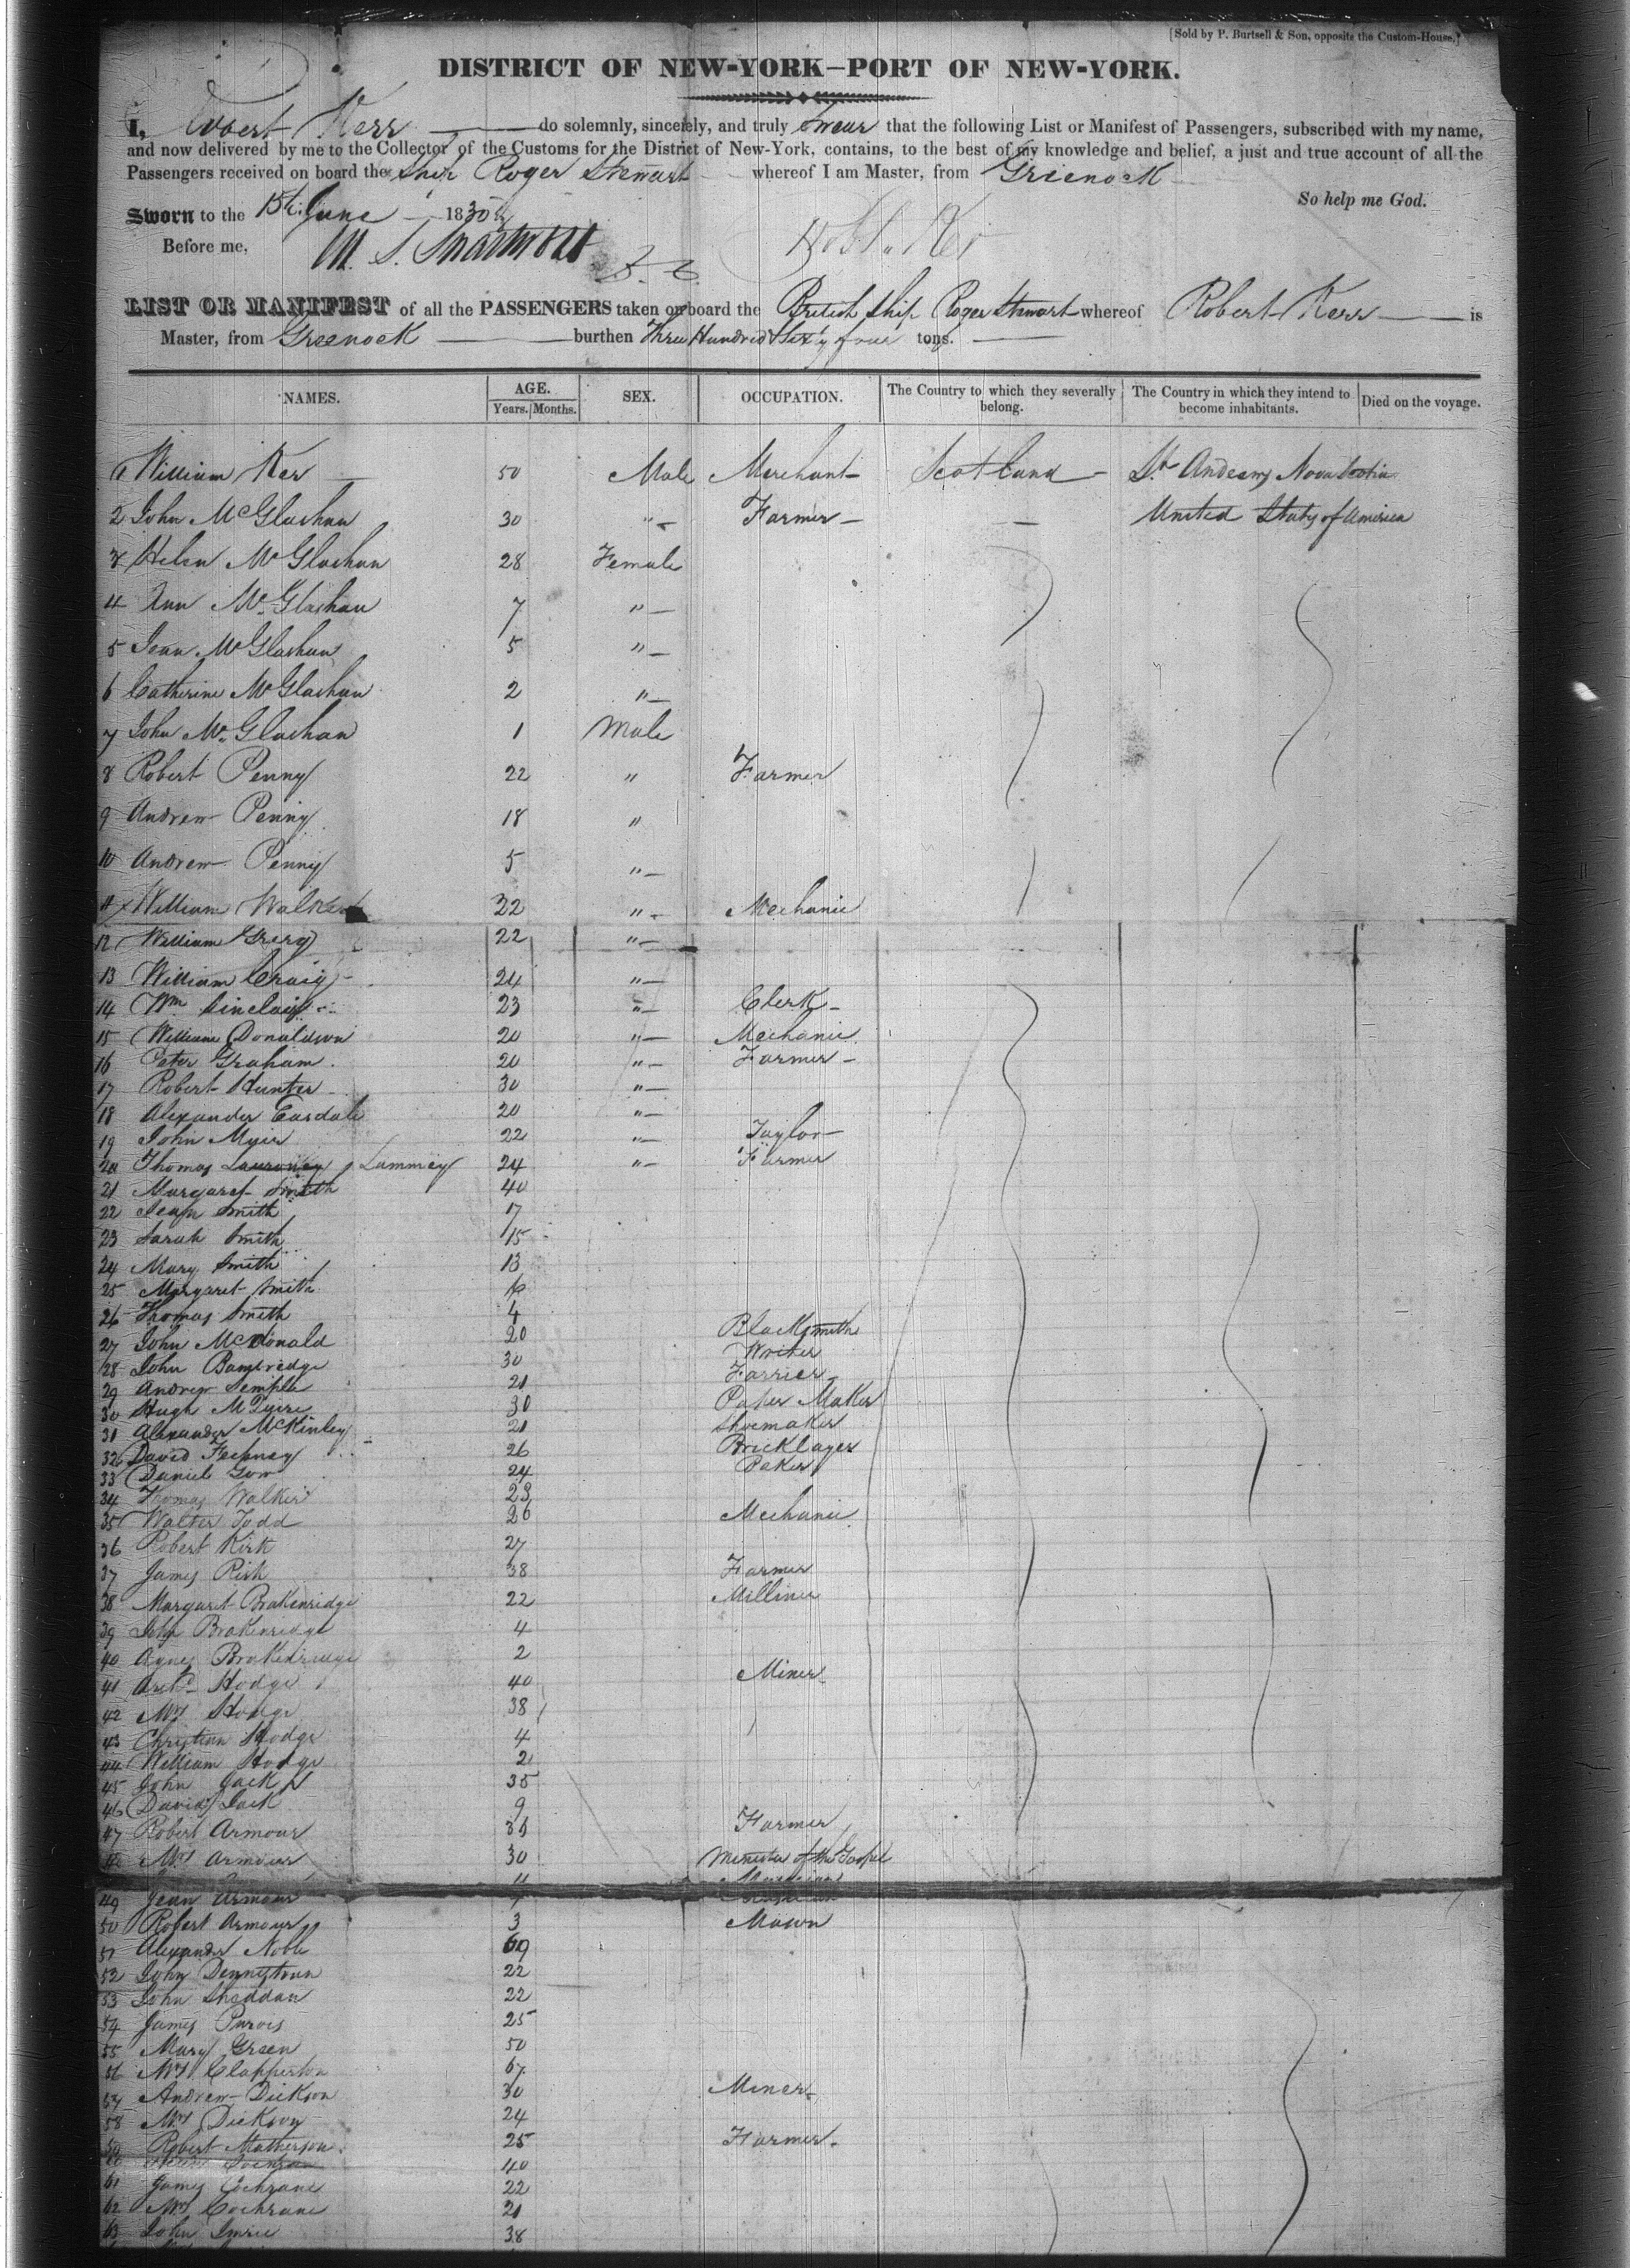 [Sold by P. Burtsell & Son, opposite the Custom-House.]
DISTRICT OF NEW-YORK—PORT OF NEW-YORK.
I, Robert Kerr do solemnly, sincerely, and truly Swear that the following List or Manifest of Passengers, subscribed with my name,
and now delivered by me to the Collector of the Customs for the District of New-York, contains, to the best of my knowledge and belief, a just and true account of all the
Passengers received on board the Ship Roger Stewart whereof I am Master, from Greenock
So help me God.
Sworn to the 15th June 1830
Before me,
LIST OR MANIFEST of all the PASSENGERS taken on board the British Ship Roger Stewart whereof Robert Kerr is
Master, from Greenock burthen Three Hundred & Sixty four tons.
NAMES. AGE. Years. Months. SEX. OCCUPATION. The Country to which they severally belong. The Country in which they intend to become inhabitants. Died on the voyage.
1 William Ker 50 Male Merchant Scotland St. Andrews Nova Scotia
2 John McGlashan 30 " Farmer — United States of America
3 Helen McGlashan 28 Female
4 Ann McGlashan 7 "
5 Jean McGlashan 5 "
6 Catherine McGlashan 2 "
7 John McGlashan 1 Male
8 Robert Penny 22 " Farmer
9 Andrew Penny 18 "
10 Andrew Penny 5 "
11 William Walker 32 " Mechanic
12 William Greig 22 "
13 William Craig 24 "
14 Wm Sinclair 23 " Clerk
15 William Donaldson 20 " Mechanic
16 Peter Graham 20 " Farmer
17 Robert Hunter 30 "
18 Alexander Easdale 20 "
19 John Myir 22 " Taylor
20 Thomas Lammey 24 " Farmer
21 Margaret Smith 40
22 Jean Smith 17
23 Sarah Smith 15
24 Mary Smith 13
25 Margaret Smith
26 Thomas Smith 4
27 John McDonald 20 Blacksmith
28 John 30 Writer
29 Andrew Semple 21 Farrier
30 Hugh 30 Paper Maker
31 Alexander McKinley 21 Shoemaker
32 David Fechney 26 Bricklayer
33 Daniel Gow 24 Baker
34 Thomas Walker 23
35 Walter Todd 26 Mechanic
36 Robert Kirk 27
37 James Rish 38 Farmer
38 Margaret Brakenridge 22 Milliner
39 John Brakenridge 4
40 Agnes Brakenridge 2
41 Archd Hodge 40 Miner
42 Mrs Hodge 38
43 Christian Hodge 4
44 William Hodge 2
45 John Jack 35
46 David Jack 9
47 Robert Armour 36 Farmer
48 Mrs Armour 30 Minister of the Gospel
49 Jean Armour
50 Robert Armour 3 Mason
51 Alexander Noble 69
52 John Dennistoun 22
53 John Sheddan 22
54 James Purves 25
55 Mary Green 50
56 Mrs Clapperton 67
57 Andrew Dickson 30 Miner
58 Mrs Dickson 24
59 Robert Matherson 25 Farmer
60 40
61 James Cochrane 22
62 Mrs Cochrane 21
63 John Imrie 38